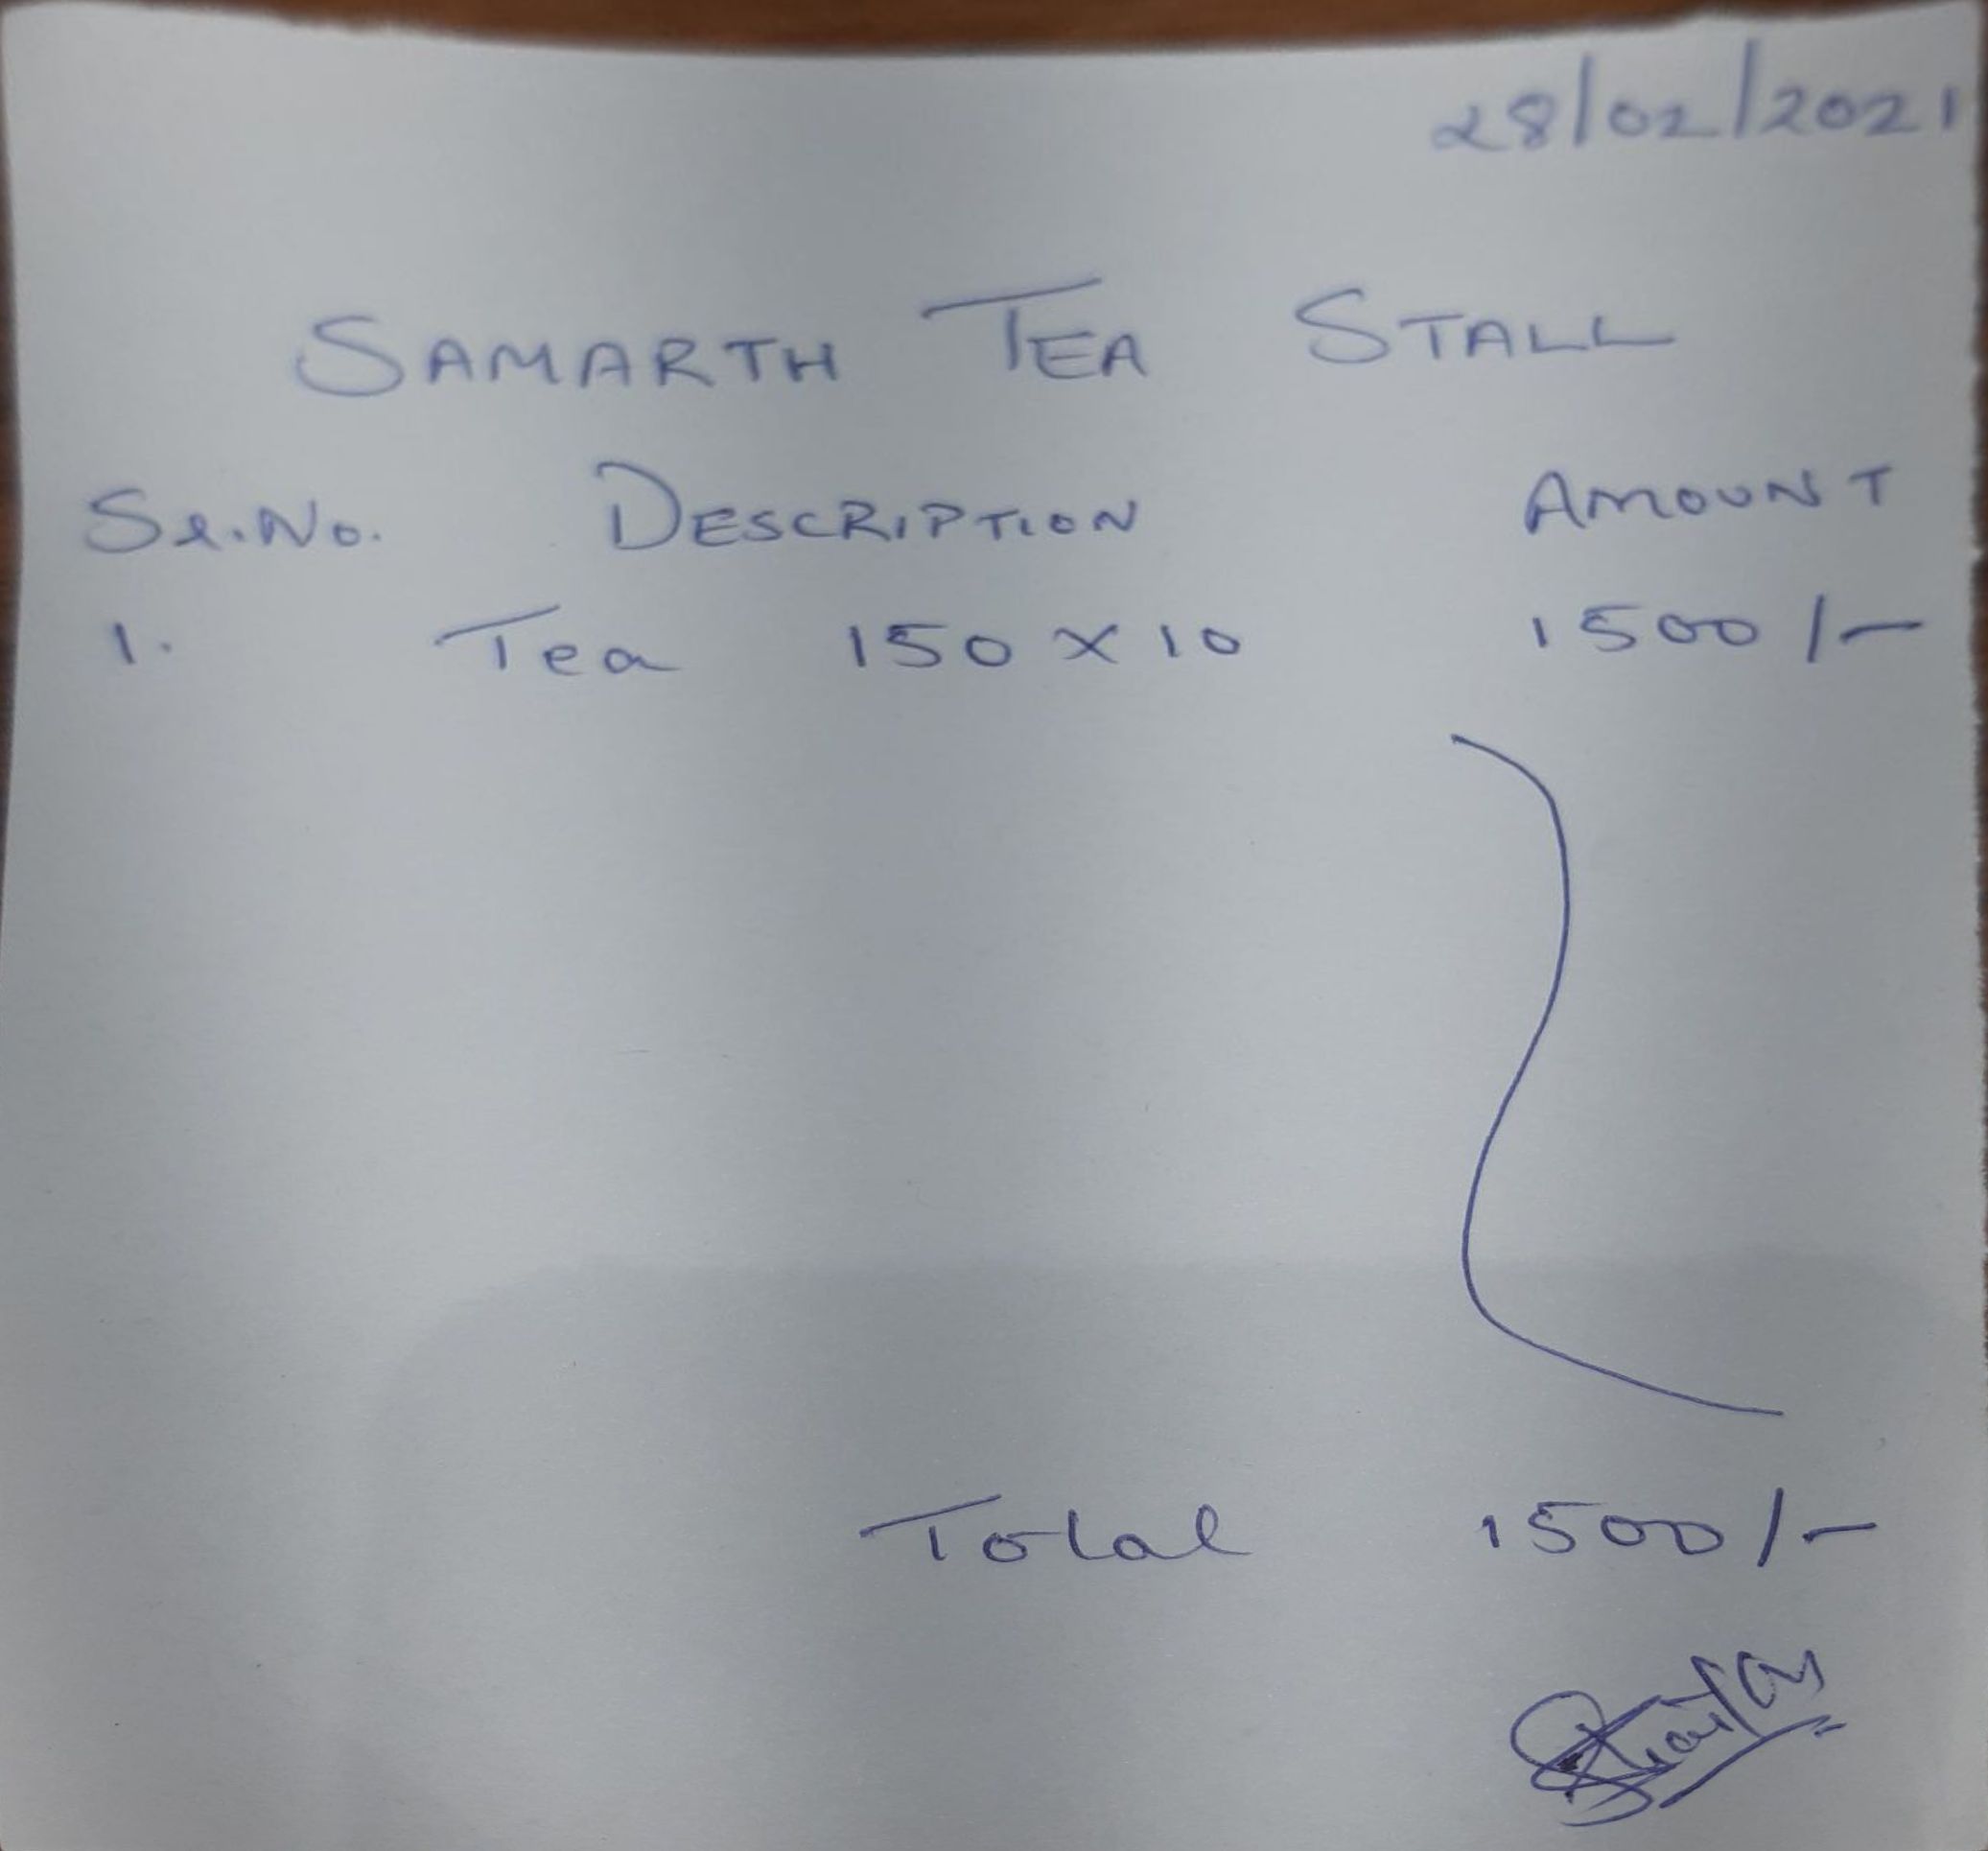 28/02/2021
SAMARTH TEA STALL
Sr.No. DESCRIPTION AMOUNT
1. Tea 150 x 10 1500/-
Total 1500/-